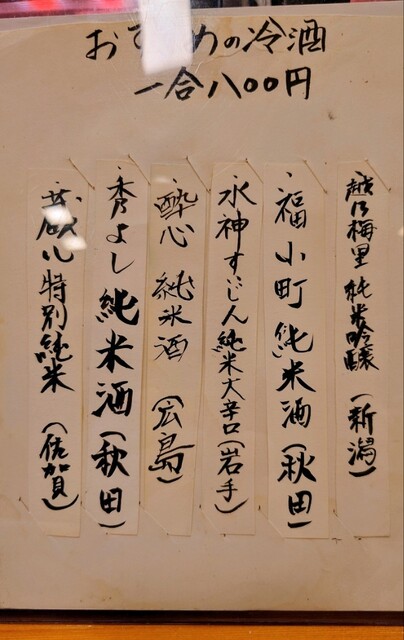 おすすめの冷酒
一合八〇〇円
越乃梅里 純米吟醸 (新潟)
福小町 純米酒 (秋田)
水神すいじん純米大辛口(岩手)
酔心 純米酒 (広島)
秀よし 純米酒 (秋田)
蔵心 特別純米 (佐賀)